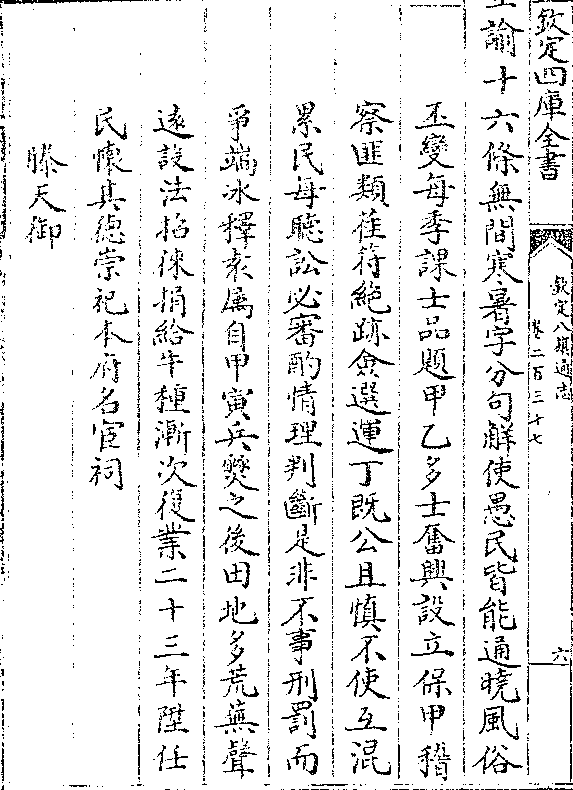 欽定四庫全書
欽定八旗通志
卷二百三十七
六
諭十六條無間寒暑字分句解使愚民皆能通曉風俗
丕變每季課士品題甲乙多士奮興設立保甲稽
察匪類萑苻絕跡僉選運丁既公且慎不使互混
累民每聽訟必審酌情理判斷是非不事刑罰而
爭端冰釋袁屬自甲寅兵燹之後田地多荒蕪聲
遠設法招徠捐給牛種漸次復業二十三年陞任
民懷其德崇祀本府名宦祠
滕天御